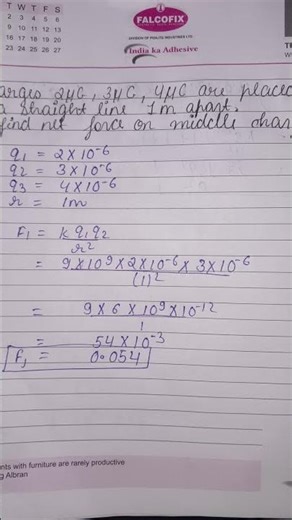 T W T F S
2 3 4 5 6
9 10 11 12 13
16 17 18 19 20
23 24 25 26 27
FALCOFIX
India ka Adhesive
2μC, 3μC, 4μC are placed
a straight line 1m apart.
find net force on middle
q1 = 2×10⁻⁶
q2 = 3×10⁻⁶
q3 = 4×10⁻⁶
r = 1m
F1 = k q1 q2
r²
= 9×10⁹×2×10⁻⁶×3×10⁻⁶
(1)²
= 9×6×10⁹×10⁻¹²
1
= 54×10⁻³
F1 = 0.054
nts with furniture are rarely productive
g Albran